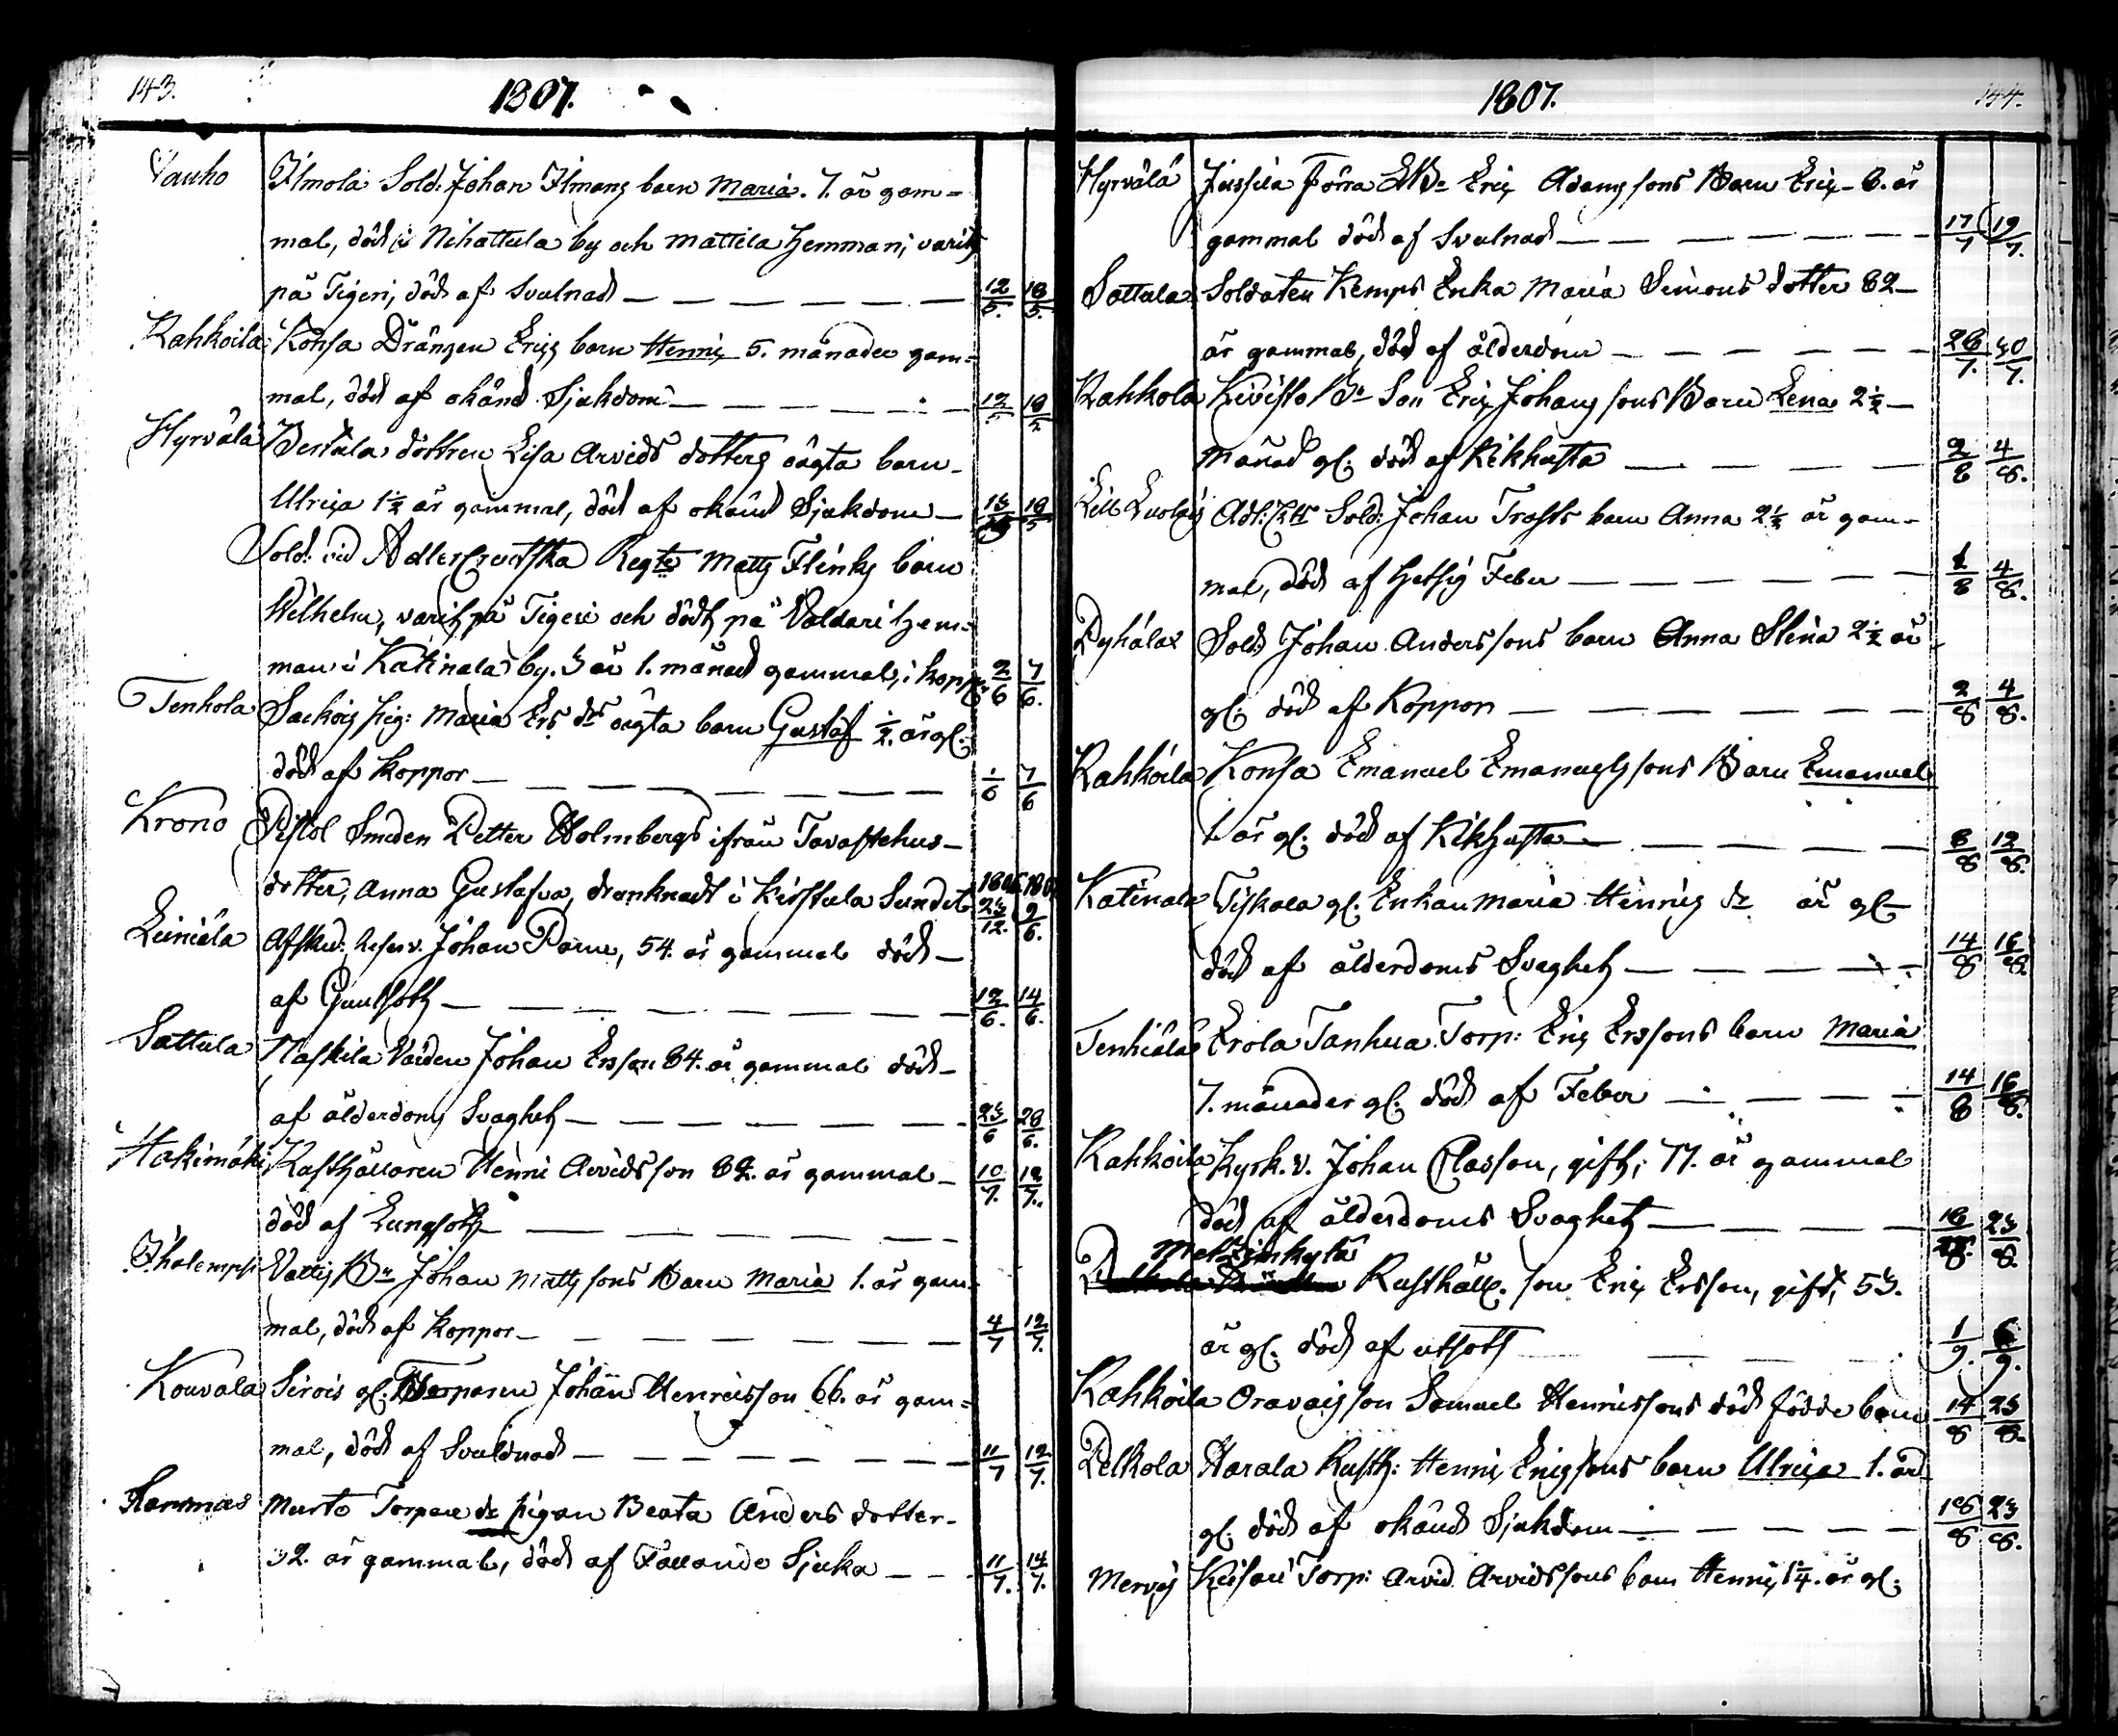 143.
1807.
Vauho Ilmola Sold: Johan Ilmans barn Maria. 7. år gam=
mal, död i Nihattula by och Mattila Hemman; varit
på Tigeri, död af Svulnad 12/5. 18/5.
Kahkoila Konsa Drängen Erics barn Henric 5. månader gam=
mal, död af okänd Sjukdom 12/5 18/5
Hyrvälä Bertula döttren Lisa Arvids dotters oägta barn
Ulrica 1½ år gammal, död af okänd Sjukdom 18/5
Sold: vid Adlercreutska Regte Matts Flinks barn
Wilhelm, varit på Tigeri och dödt på Valdari Hem=
man i Katinala by. 3 år 1. månad gammal, i koppor 2/6 7/6.
Tenhola pig: Maria Ers dr oägta barn Gustaf ½ år gl.
död af Koppor 1/6 7/6
Krono Pistol Smeden Petter Holmbergs ifrån Tavastehus
dotter, Anna Gustafva, drunknadt i Kirstula Sundet 1806 23/12. 1807 9/6.
Leiniälä Afsked. Johan Parm, 54. år gammal död
af Gulsoth 12/6. 14/6.
Sattula Naskila Johan Ersson 84. år gammal död
af ålderdoms Svaghet 23/6 28/6.
Hakimäki Rusthållaren Henric Arvidsson 82. år gammal 10/7. 12/7.
död af Lungsoth
Ihalempi Vattis Br Johan Mattssons Barn Maria 1. år gam=
mal, död af Koppor 4/7 12/7.
Kouvala Sirois gl. Torparen Johan Henricsson 66. år gam=
mal, död af Svulnad 11/7 12/7.
Murto Torpare dr pigan Beata Anders dotter
32. år gammal, död af Fallande Sjuka 11/7. 14/7.
1807.
144.
Hyrvälä Jussila Förra Eric Adamssons Barn Eric 6. år
gammal död af Svulnad 17/7 19/7.
Sattula Soldaten Kemps Enka Maria Simons dotter 82
år gammal, död af ålderdom 26/7. 30/7.
Kahkola Kivisto Br Son Eric Johanssons Barn Lena 2½
månad gl. död af Kikhosta 2/8 4/8.
Lill Luolais Adl: Sold: Johan Trosts barn Anna 2½ år gam=
mal, död af Hetsig Feber 1/8 4/8.
Pyhälax Sold: Johan Anderssons barn Anna Stina 2½ år
gl. död af Koppor 2/8 4/8.
Kahkoila Konsa Emanuel Emanuelssons Barn Emanuel
1. år gl. död af Kikhosta 8/8 12/8.
Katinala Tyskala gl. Enkan Maria Henrics dr år gl.
död af ålderdoms Svaghet 14/8 16/8
Tenhiälä Erola Tanhua Torp: Eric Erssons barn Maria
7. månader gl. död af Feber 14/8 16/8.
Kahkoila Kyrk. v. Johan Classon, gift, 77. år gammal
död af ålderdoms Svaghet 18/8. 23/8.
Metzinkylä
Rusthåll. son Eric Ersson, gift, 53.
år gl. död af utsoth 1/9. 6/9.
Kahkoila Oravais son Samuel Henricssons död födde barn 14/8 23/8.
Pelkola Harala Rusth: Henric Ericssons barn Ulrica 1. år
gl. död af okänd Sjukdom 18/8 23/8.
Mervis Torp: Arvid Arvidssons barn Henric 1¼. år gl.